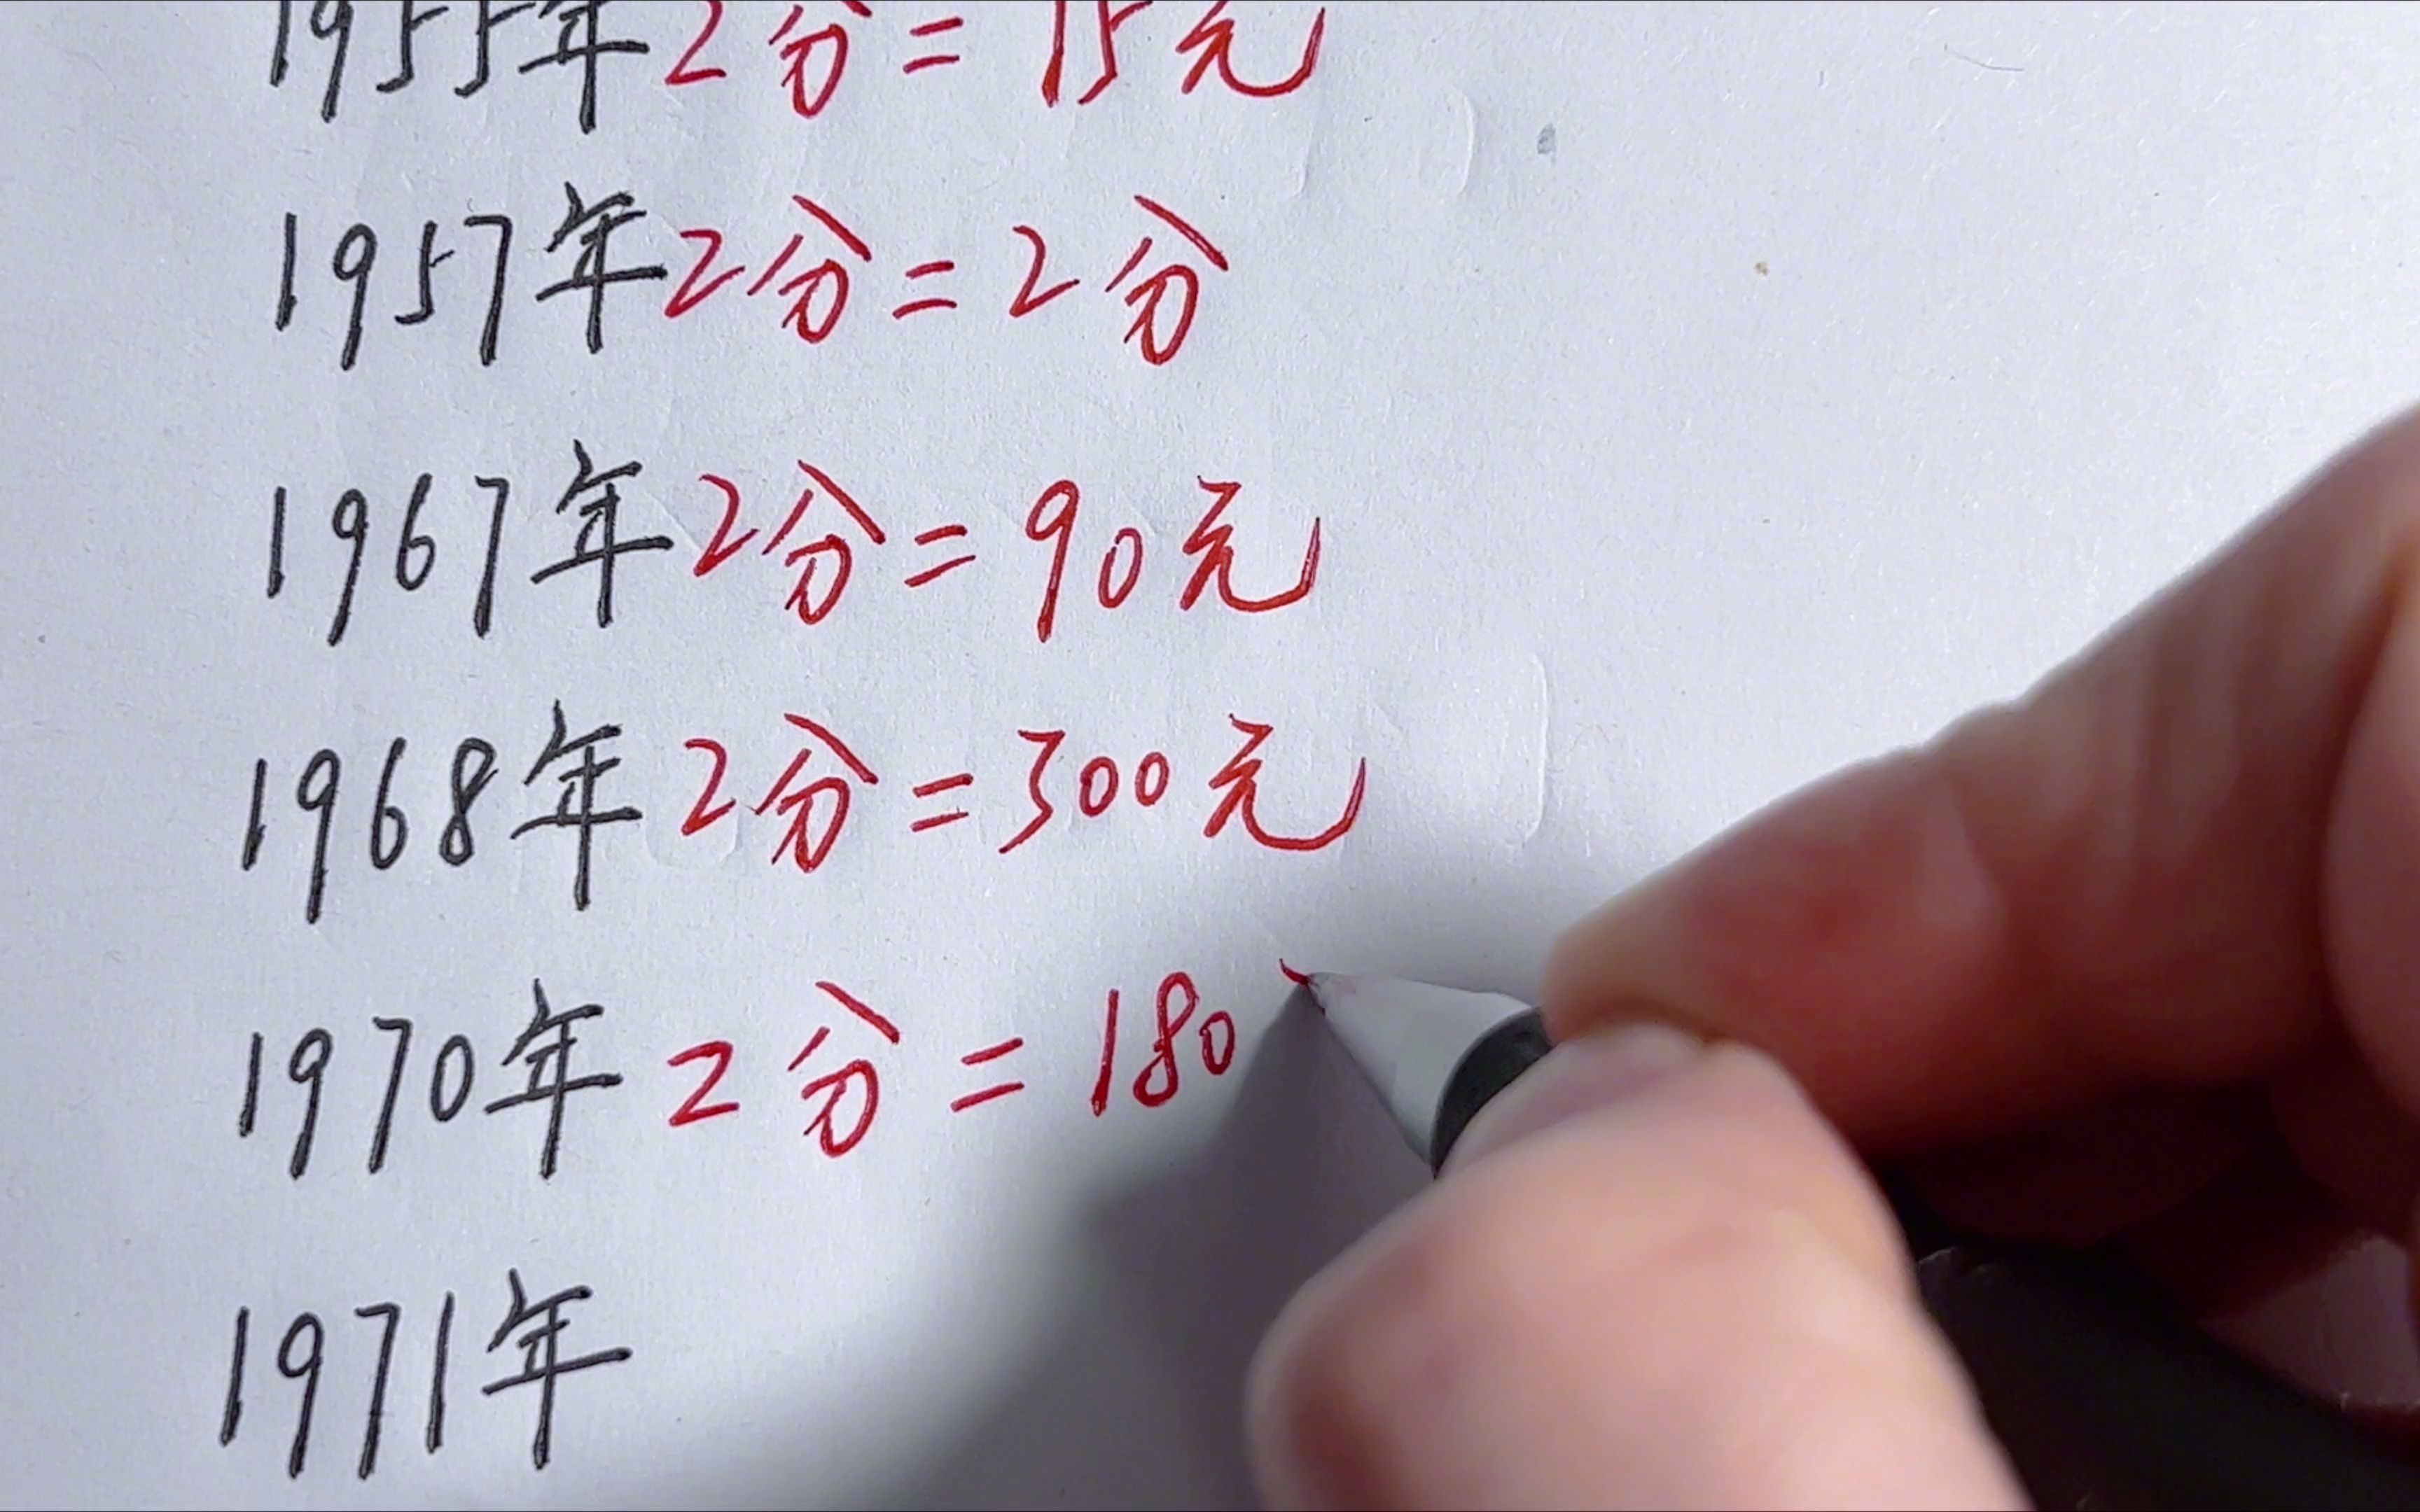 1955年2分=15元
1957年2分=2分
1967年2分=90元
1968年2分=300元
1970年2分=180
1971年